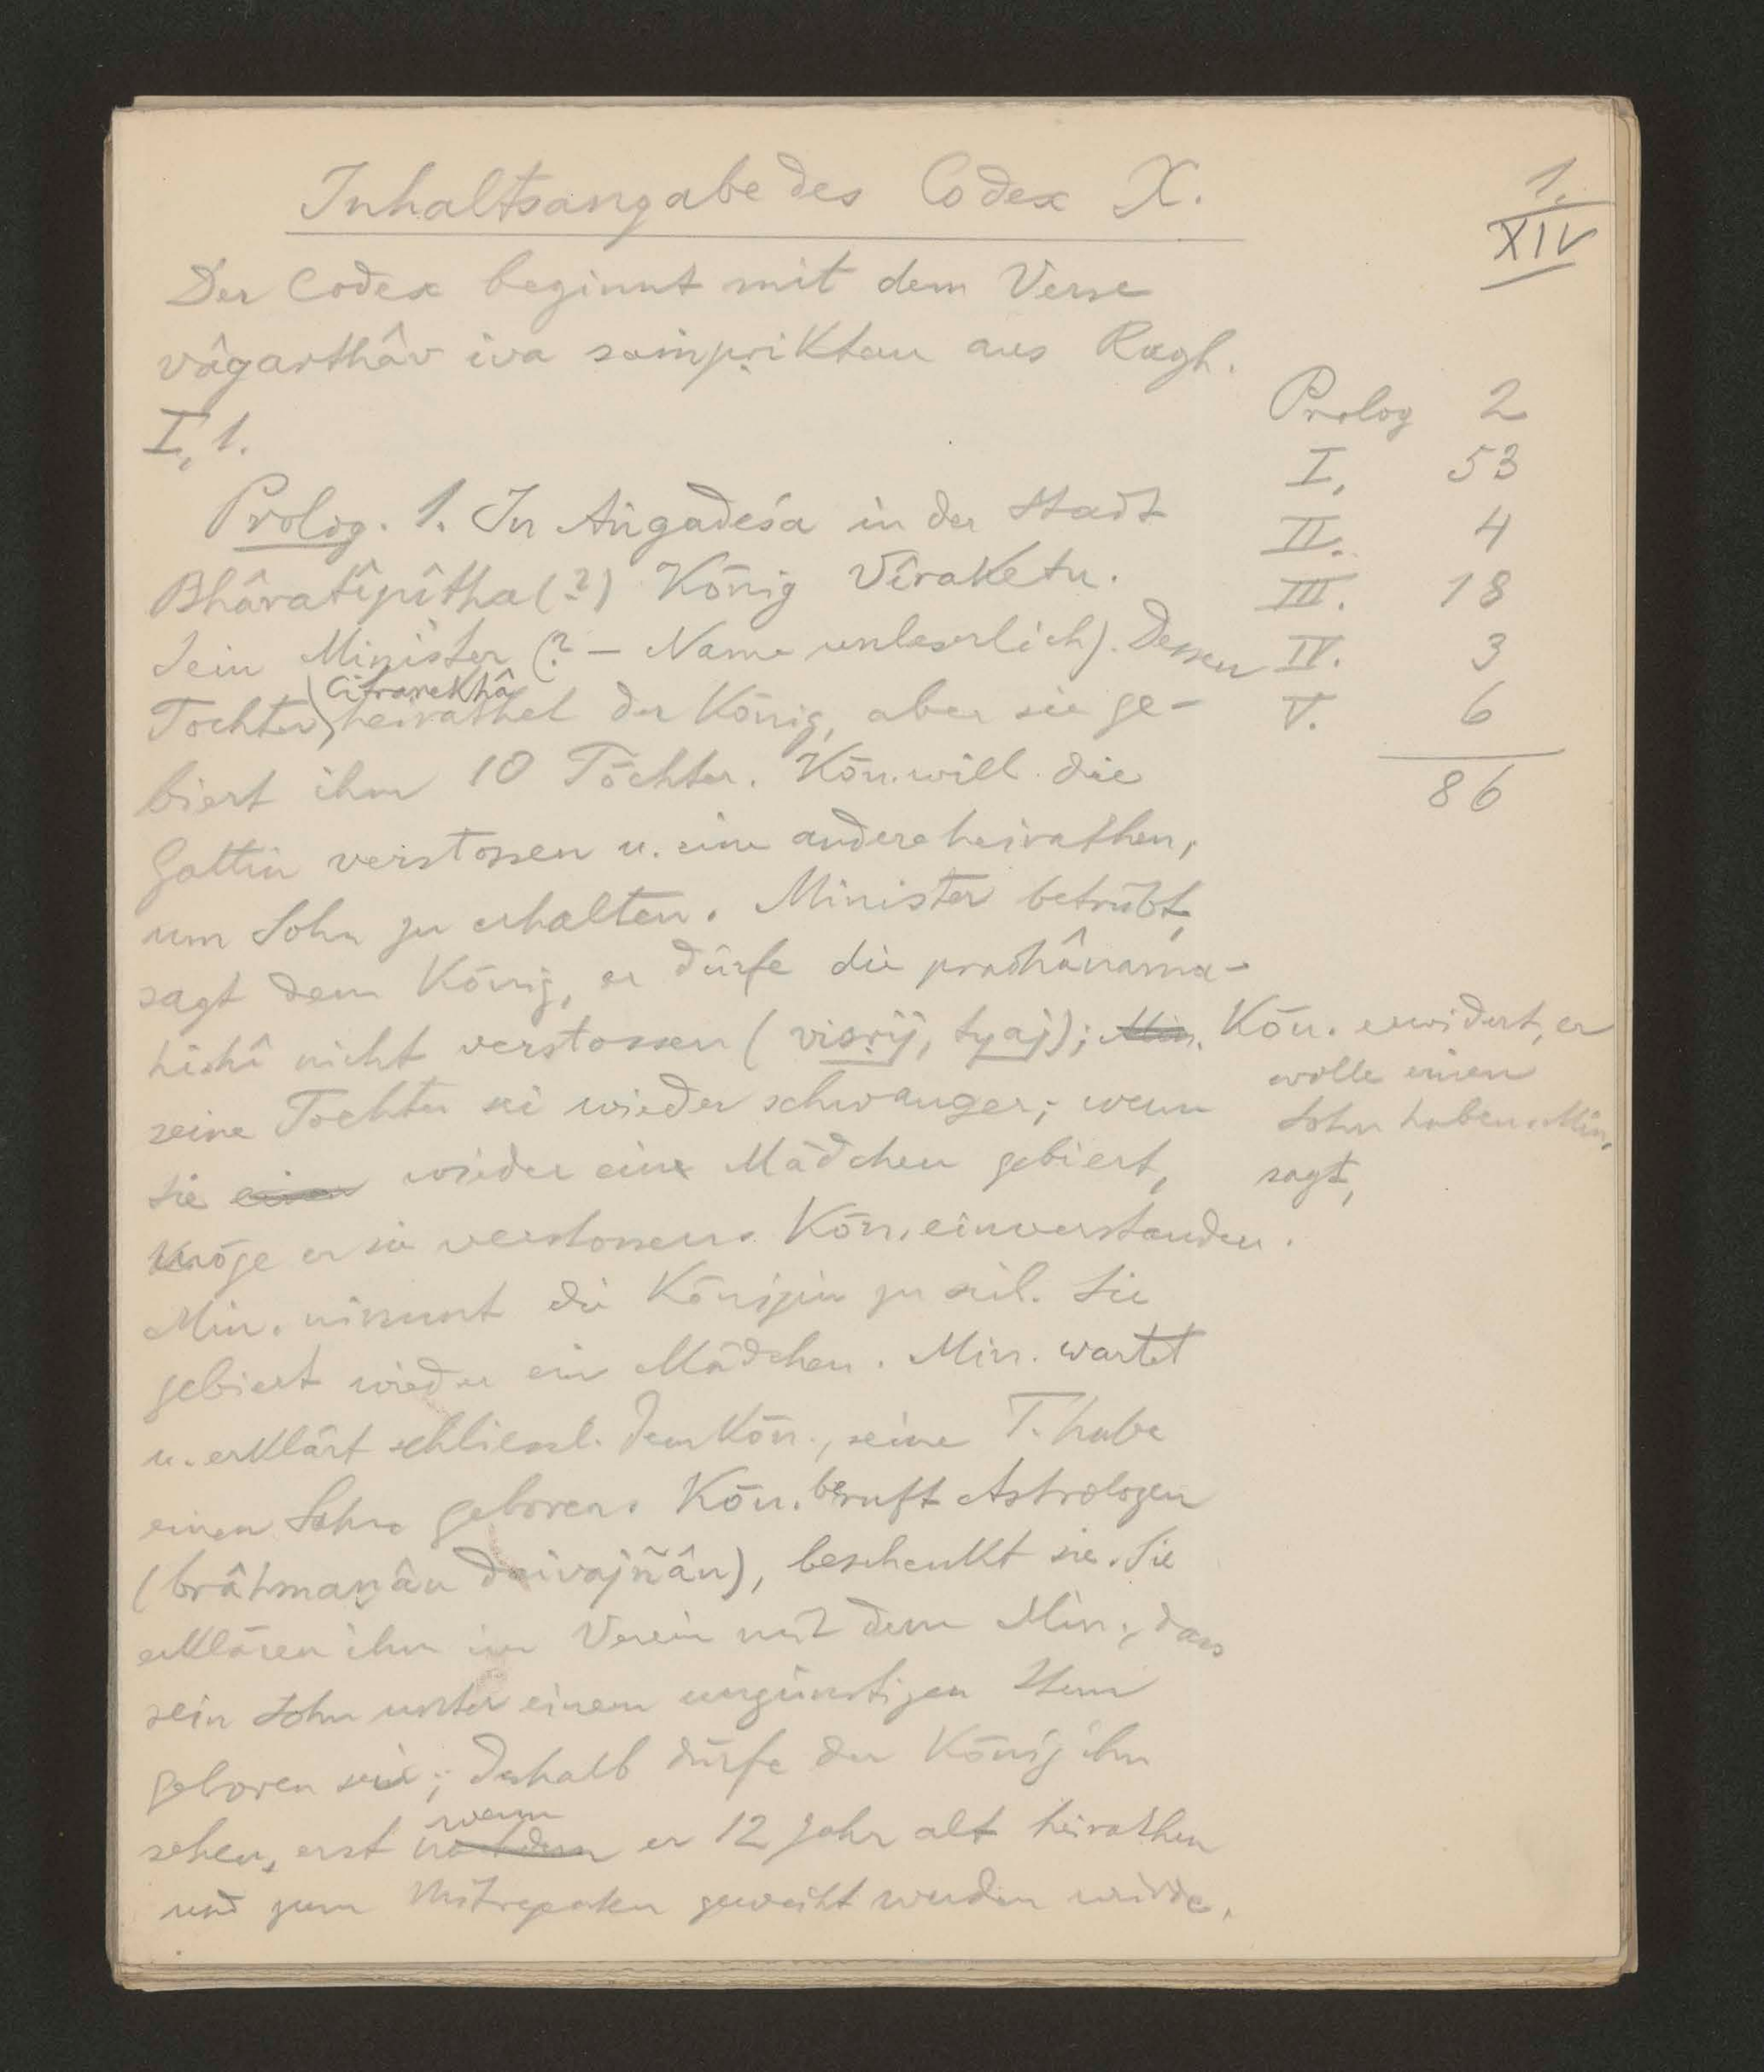 Inhaltsangabe des Codex X.
1.
XIV
Der Codex beginnt mit dem Verse
vâgarthâv iva saṁpṛiktau aus Ragh.
I, 1.
Prolog. 1. In Aṅgadeśa in der Stadt
Bhâratîpîṭha (?) König Vîraketu.
Sein Minister (? – Name unleserlich). Dessen
Tochter Citrarekhâ heirathet der König, aber sie ge-
biert ihm 10 Töchter. Kön. will die
Gattin verstossen u. eine andere heirathen,
um Sohn zu erhalten. Minister betrübt,
sagt dem König, er dürfe die pradhânama-
hishî nicht verstossen (visṛij, tyaj); Min. Kön. erwidert, er
wolle einen
Sohn haben. Min.
sagt,
seine Tochter sei wieder schwanger; wenn
sie einen wieder ein Mädchen gebiert,
möge er sie verstossen. Kön. einverstanden.
Min. nimmt die Königin zu sich. Sie
gebiert wieder ein Mädchen. Min. wartet
u. erklärt schliessl. dem Kön., seine T. habe
einen Sohn geboren. Kön. beruft Astrologen
(brâhmaṇân daivajñân), beschenkt sie. Sie
erklären ihm im Verein mit dem Min., dass
sein Sohn unter einem ungünstigen Stern
geboren sei; deshalb dürfe der König ihn
sehen, erst nachdem wenn er 12 Jahr alt heirathen
und zum geweiht werden würde.
Prolog 2
I, 53
II. 4
III. 18
IV. 3
V. 6
86